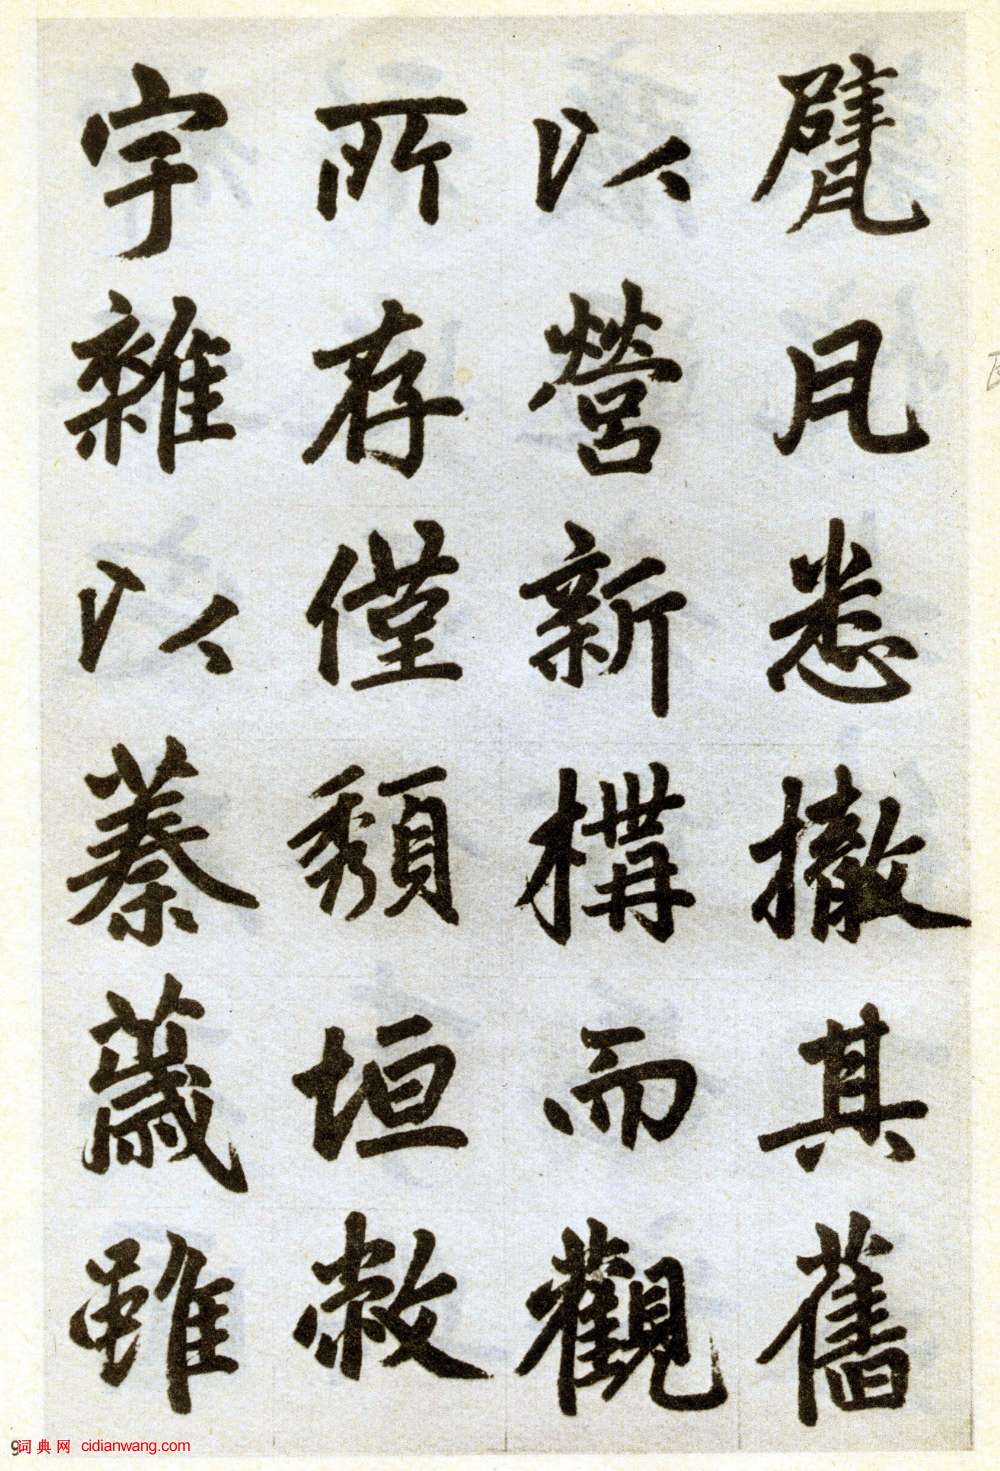 甓瓦悉撤其舊
以營新構而觀
所存僅頹垣敝
宇雜以蓁薉雖
9
词典网 cidianwang.com